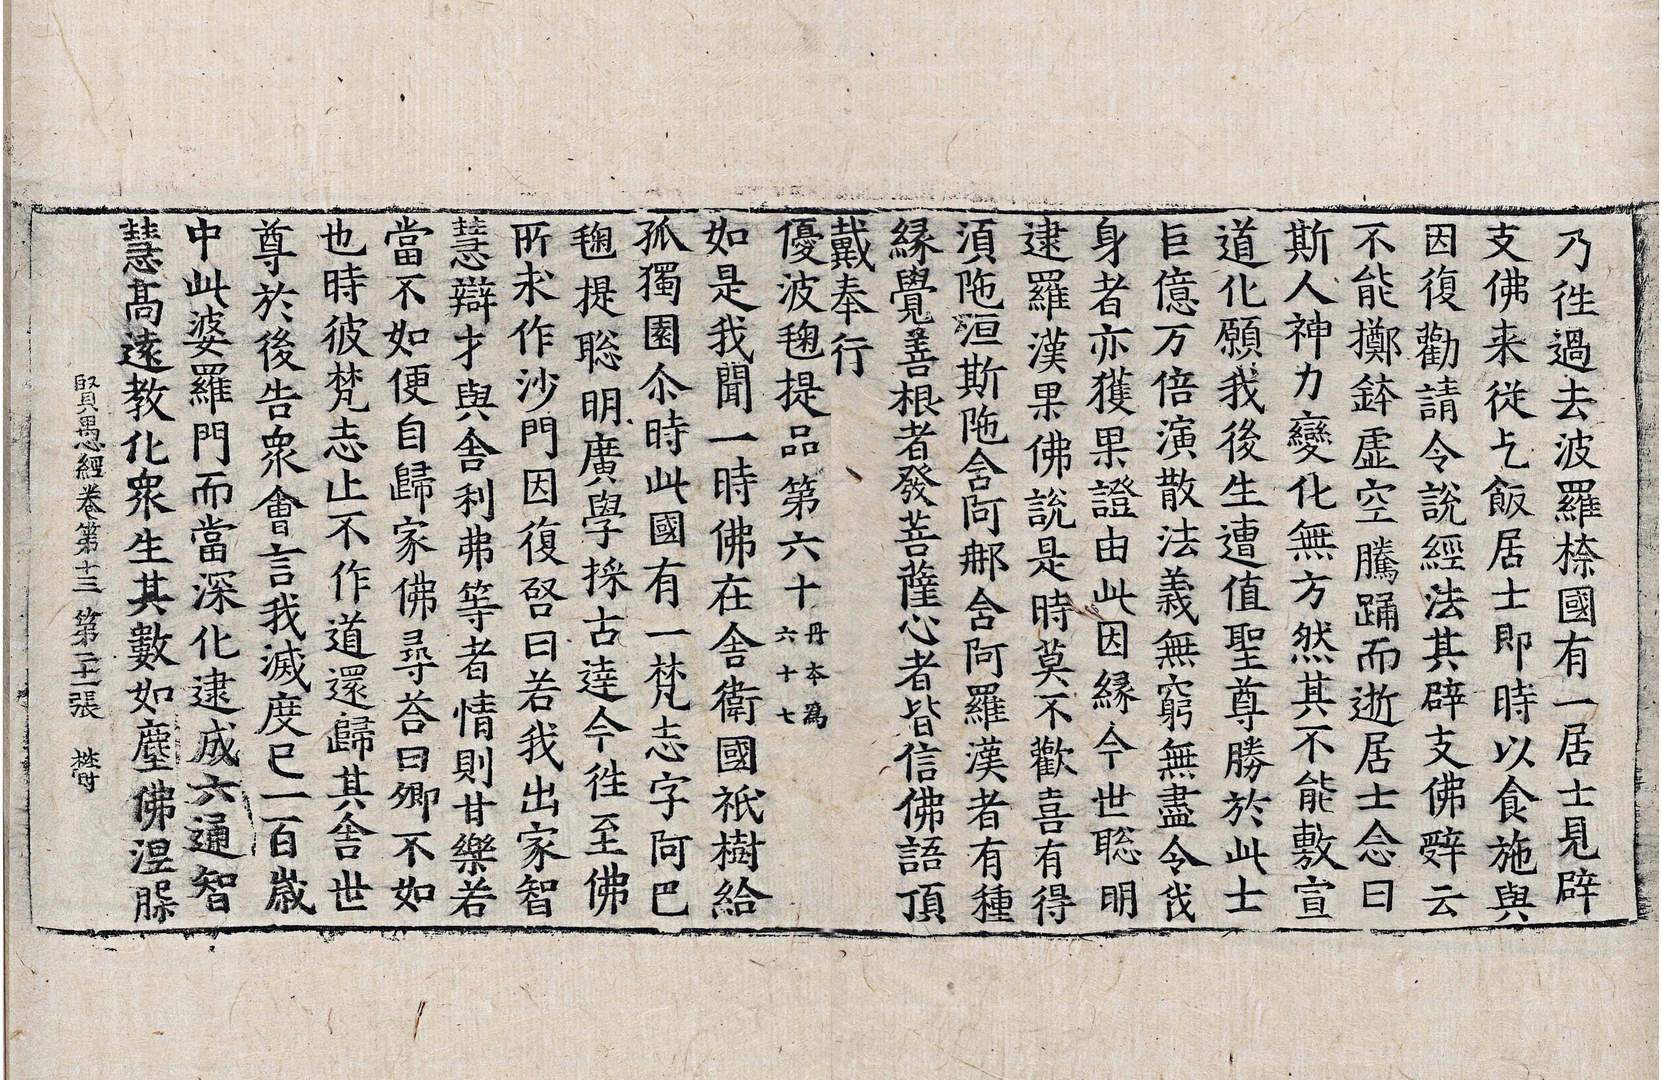 乃徃過去波羅㮈國有一居士見辟
支佛来従乞飯居士即時以食施與
因復勸請令說經法其辟支佛辤云
不能擲鉢虛空騰踊而逝居士念曰
斯人神力變化無方然其不能敷宣
道化願我後生遭值聖尊勝於此士
巨億万倍演散法義無窮無盡令我
身者亦獲果證由此因緣今世聡明
逮羅漢果佛說是時莫不歡喜有得
湏陁洹斯陁含阿那含阿羅漢者有種
緣覺善根者發菩薩心者皆信佛語頂
戴奉行
優波毱提品第六十丹本爲六十七
如是我聞一時佛在舍衛國祇樹給
孤獨園尒時此國有一梵志字阿巴
毱提聡明廣學採古達今徃至佛
所求作沙門因復啓曰若我出家智
慧辯才與舍利弗等者情則甘樂若
當不如便自歸家佛尋荅曰卿不如
也時彼梵志止不作道還歸其舍世
尊於後告衆會言我滅度已一百歲
中此婆羅門而當深化逮成六通智
慧高遠教化衆生其數如塵佛涅槃
賢愚經卷第十三 第二十一張